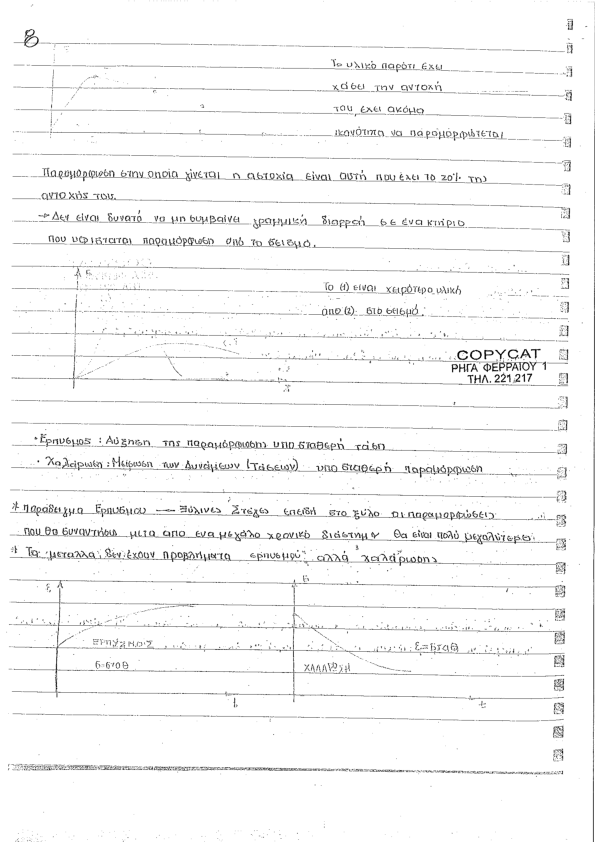 8
Το υλικό παρότι έχει
χάσει την αντοχή
του, έχει ακόμα
ικανότητα να παραμορφώνεται
Παραμόρφωση στην οποία γίνεται η αστοχία είναι αυτή που έχει το 20% της
αντοχής του.
→ Δεν είναι δυνατό να μη συμβαίνει γραμμική διαρροή σε ένα κτήριο
που υφίσταται παραμόρφωση από το σεισμό.
σ
Το (1) είναι χειρότερο υλικό
από (2) στο σεισμό.
COPYCAT
ΡΗΓΑ ΦΕΡΡΑΙΟΥ 1
ΤΗΛ. 221.217
• Ερπυσμός : Αύξηση της παραμόρφωσης υπό σταθερή τάση
• Χαλάρωση : Μείωση των Δυνάμεων (Τάσεων) υπό σταθερή παραμόρφωση
* Παράδειγμα Ερπυσμού — Ξύλινες Στέγες επειδή στο ξύλο οι παραμορφώσεις
που θα συναντήσω μετά από ένα μεγάλο χρονικό διάστημα θα είναι πολύ μεγαλύτερες.
* Τα μέταλλα δεν έχουν προβλήματα ερπυσμού αλλά χαλάρωσης
ε
σ
ΕΡΠΥΣΜΟΣ
ε=σταθ
σ=σταθ
ΧΑΛΑΡΩΣΗ
t
t